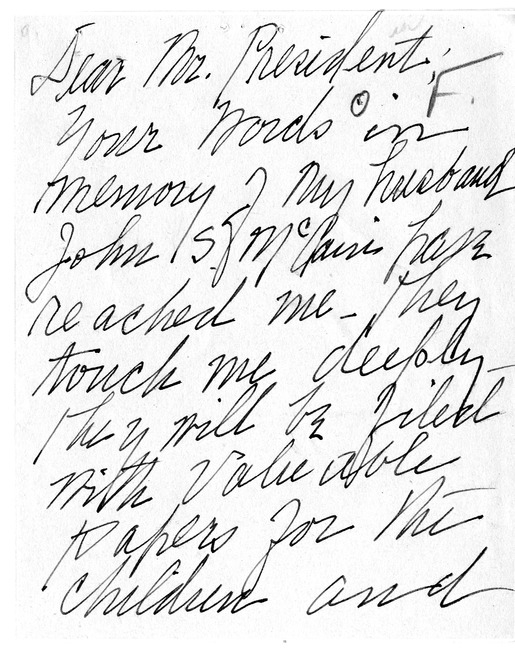 Dear Mr. President,
F.
Your words in
memory of my husband
John S McCain have
reached me - They
touch me deeply -
They will be filed
with valueable
papers for the
children and